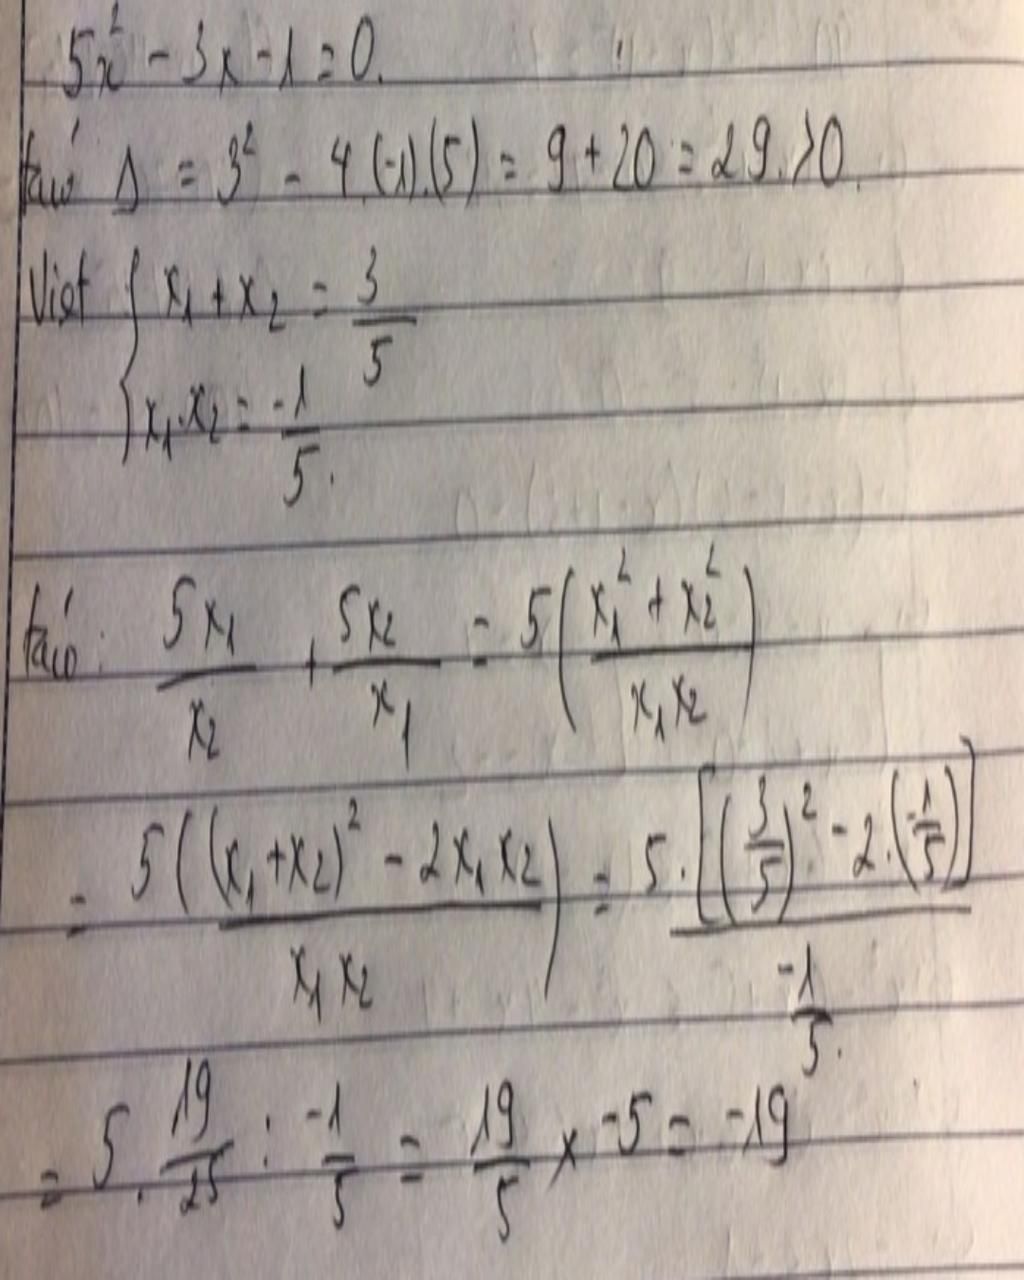 5x² - 3x - 1 = 0.
Δ = 3² - 4.(-1).(5) = 9 + 20 = 29 > 0.
Viet { x₁ + x₂ = 3/5
x₁.x₂ = -1/5.
5x₁/x₂ + 5x₂/x₁ = 5((x₁² + x₂²)/(x₁x₂))
= 5(((x₁+x₂)² - 2x₁x₂)/(x₁x₂)) = 5.[(3/5)² - 2.(-1/5)]/(-1/5).
= 5.19/25 : -1/5 = 19/5 x -5 = -19